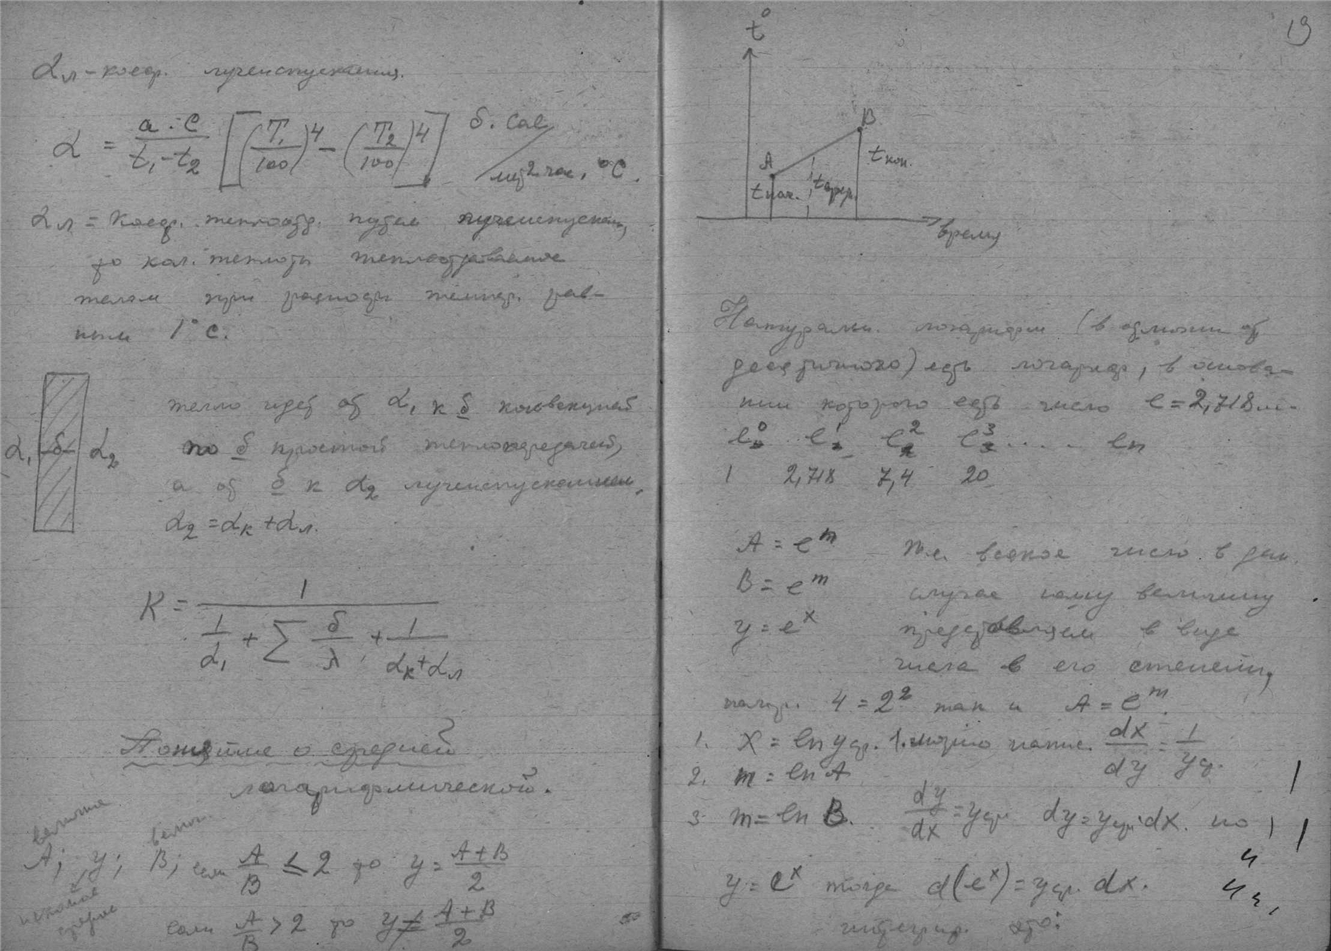 αл – коеф. лучеиспускания.
α = a · c / t₁ – t₂ [(T₁/100)⁴ – (T₂/100)⁴] б. Cal / мет² час, °C.
αл = коеф. теплоотд. путем лучеиспускан,
то кол. теплоты
телом при разности темпер. рав-
ным 1° C.
тепло идет от α₁ к δ конвекцией
α₁ δ α₂
по δ простой теплопередачей,
а от δ к α₂ лучеиспусканием.
α₂ = αк + αл.
K = 1 / (1/α₁ + ∑ δ/λ + 1/(αк + αл))
Понятие о средней
логарифмической.
A; y; B; если A/B ≤ 2 то y = A+B/2
искомое
среднее
если A/B > 2 то y ≠ A+B/2
19
t°
B
A
t кон.
t нач. t сред.
время
Натуральн. логарифм (в отличии от
десятичного) есть логариф, в основа-
нии которого есть число e = 2,718
e⁰ e¹ e² e³ ..... en
1 2,718 7,4 20
A = e^m т.е. всякое число в дан.
B = e^m случае нашу величину
y = e^x представляем в виде
числа в его степени,
напр. 4 = 2² так и A = e^m.
1. x = ln y ср. 1. можно напис. dx/dy = 1/y ср.
2. m = ln A
3. m = ln B. dy/dx = y ср. dy = y ср. dx. но
y = e^x тогда d(e^x) = y ср. dx.
интегрир. это: